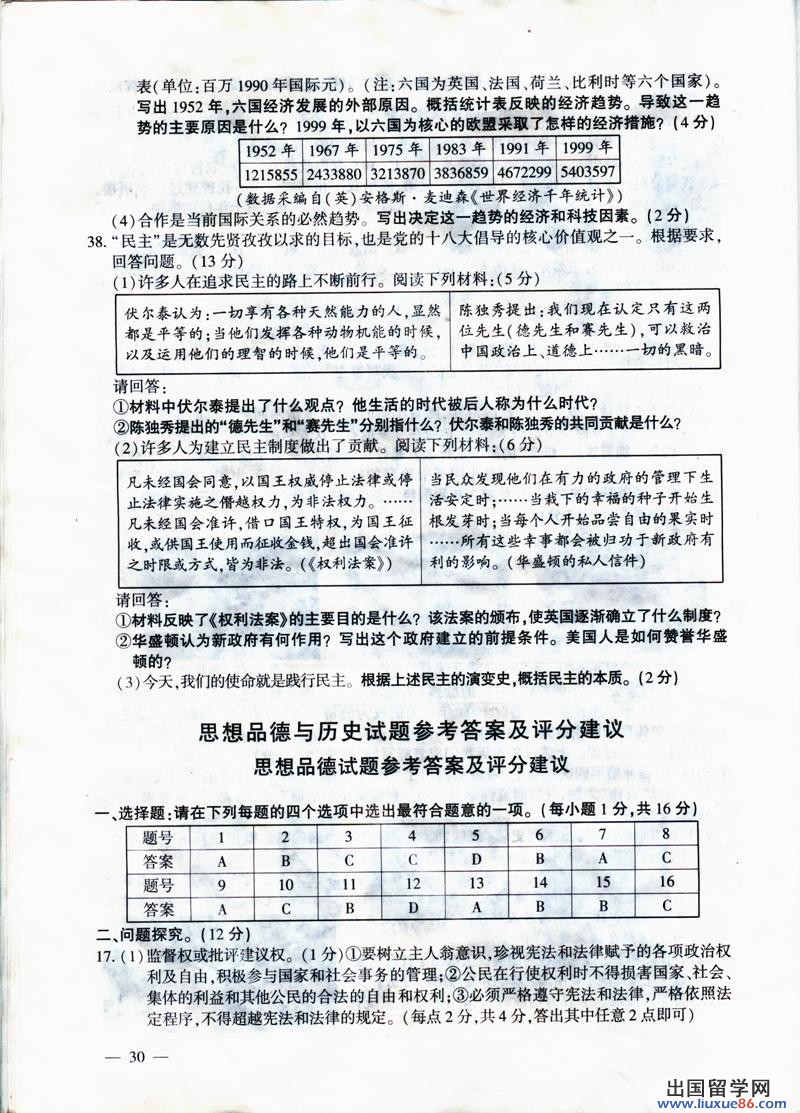 表(单位:百万 1990 年国际元)。(注:六国为英国、法国、荷兰、比利时等六个国家)。
写出 1952 年,六国经济发展的外部原因。概括统计表反映的经济趋势。导致这一趋
势的主要原因是什么? 1999 年,以六国为核心的欧盟采取了怎样的经济措施? (4 分)
1952 年 1967 年 1975 年 1983 年 1991 年 1999 年
1215855 2433880 3213870 3836859 4672299 5403597
(数据采编自(英)安格斯·麦迪森《世界经济千年统计》)
(4)合作是当前国际关系的必然趋势。写出决定这一趋势的经济和科技因素。(2 分)
38. “民主”是无数先贤孜孜以求的目标,也是党的十八大倡导的核心价值观之一。根据要求,
回答问题。(13 分)
(1)许多人在追求民主的路上不断前行。阅读下列材料:(5 分)
伏尔泰认为:一切享有各种天然能力的人,显然
都是平等的;当他们发挥各种动物机能的时候,
以及运用他们的理智的时候,他们是平等的。
陈独秀提出:我们现在认定只有这两
位先生(德先生和赛先生),可以救治
中国政治上、道德上……一切的黑暗。
请回答:
①材料中伏尔泰提出了什么观点? 他生活的时代被后人称为什么时代?
②陈独秀提出的“德先生”和“赛先生”分别指什么? 伏尔泰和陈独秀的共同贡献是什么?
(2)许多人为建立民主制度做出了贡献。阅读下列材料:(6 分)
凡未经国会同意,以国王权威停止法律或停
止法律实施之僭越权力,为非法权力。……
凡未经国会准许,借口国王特权,为国王征
收,或供国王使用而征收金钱,超出国会准许
之时限或方式,皆为非法。(《权利法案》)
当民众发现他们在有力的政府的管理下生
活安定时;……当栽下的幸福的种子开始生
根发芽时;当每个人开始品尝自由的果实时
……所有这些幸事都会被归功于新政府有
利的影响。(华盛顿的私人信件)
请回答:
①材料反映了《权利法案》的主要目的是什么? 该法案的颁布,使英国逐渐确立了什么制度?
②华盛顿认为新政府有何作用? 写出这个政府建立的前提条件。美国人是如何赞誉华盛
顿的?
(3)今天,我们的使命就是践行民主。根据上述民主的演变史,概括民主的本质。(2 分)
思想品德与历史试题参考答案及评分建议
思想品德试题参考答案及评分建议
一、选择题:请在下列每题的四个选项中选出最符合题意的一项。(每小题 1 分,共 16 分)
题号 1 2 3 4 5 6 7 8
答案 A B C C D B A C
题号 9 10 11 12 13 14 15 16
答案 A C B D A B B C
二、问题探究。(12 分)
17. (1)监督权或批评建议权。(1 分)①要树立主人翁意识,珍视宪法和法律赋予的各项政治权
利及自由,积极参与国家和社会事务的管理;②公民在行使权利时不得损害国家、社会、
集体的利益和其他公民的合法的自由和权利;③必须严格遵守宪法和法律,严格依照法
定程序,不得超越宪法和法律的规定。(每点 2 分,共 4 分,答出其中任意 2 点即可)
— 30 —
出国留学网
www.liuxue86.com